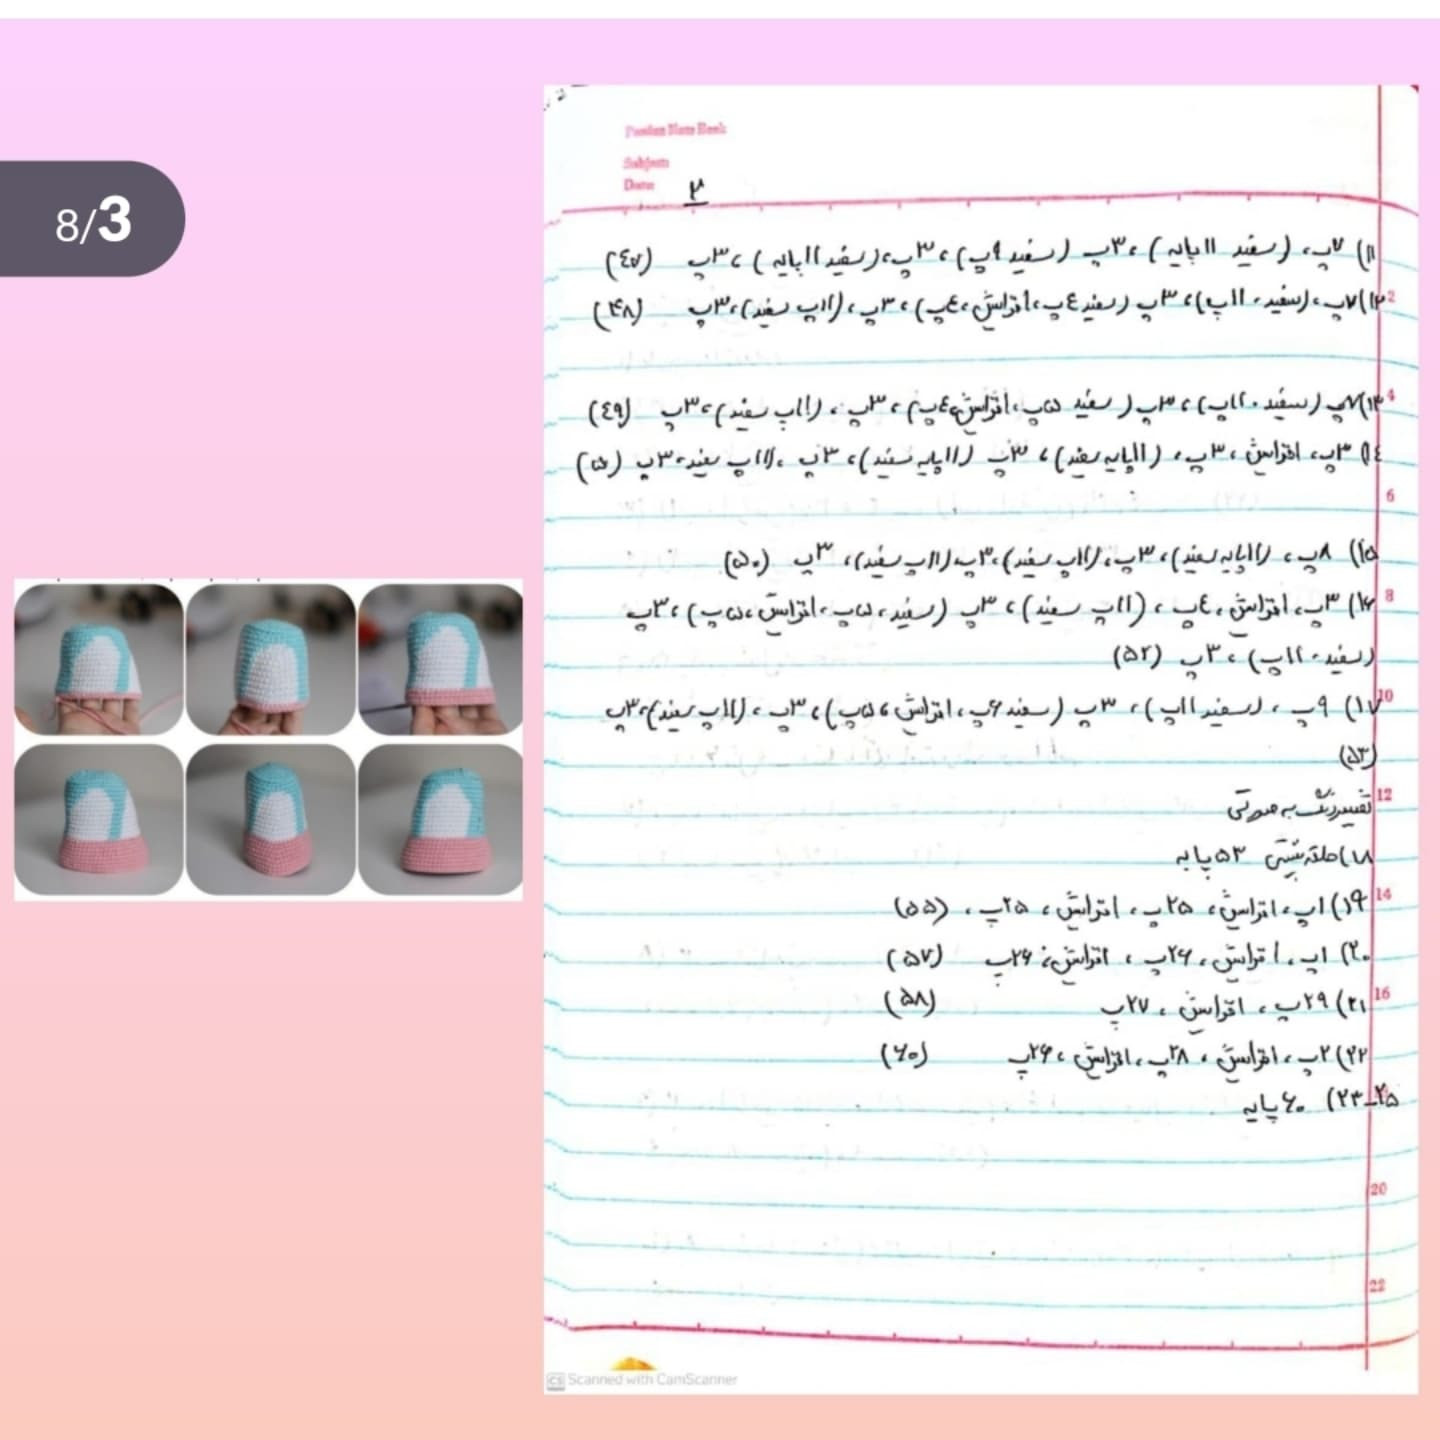 8/3
Subject
Date
۳
۱۱) ۷پ، (سفید ۱۱پایه)، ۳پ (سفید ۹پ)، ۳پ، (سفید ۱۱پایه)، ۳پ (٤۷)
۱۲) ۷پ، (سفید، ۱۱پ)، ۳پ (سفید ٤پ، افزایش، ٤پ)، ۳پ، (۱۱پ سفید)، ۳پ (۴۸)
۱۳) ۷پ (سفید ۱۱پ)، ۳پ (سفید ۵پ، افزایش، ٤پ)، ۳پ، (۱۱پ سفید)، ۳پ (٤۹)
۱٤) ۳پ، افزایش، ۳پ، (۱۱پایه سفید)، ۳پ (۱۱پایه سفید)، ۳پ، (۱۱پ سفید، ۳پ (۵۰)
۱۵) ۸پ، (۱۱پایه سفید)، ۳پ، (۱۱پ سفید)، ۳پ، (۱۱پ سفید)، ۳پ (۵۰)
۱۶) ۳پ، افزایش، ٤پ، (۱۱پ سفید)، ۳پ (سفید، ۵پ، افزایش، ۵پ)، ۳پ،
(سفید، ۱۱پ)، ۳پ (۵۲)
۱۷) ۹پ، (سفید ۱۱پ)، ۳پ (سفید ۶پ، افزایش، ۵پ)، ۳پ، (۱۱پ سفید)، ۳پ
(۵۳)
تغییر رنگ به صورتی
۱۸) حلقه پشتی ۵۳ پایه
۱۹) ۱پ، افزایش، ۲۵پ، افزایش، ۲۵پ، (۵۵)
۲۰) ۱پ، افزایش، ۲۶پ، افزایش، ۲۶پ (۵۷)
۲۱) ۲۹پ، افزایش، ۲۷پ (۵۸)
۲۲) ۲پ، افزایش، ۲۸پ، افزایش، ۲۶پ (۶۰)
۲۳_۲۵) ۶۰ پایه
2
4
6
8
10
12
14
16
20
22
CS Scanned with CamScanner